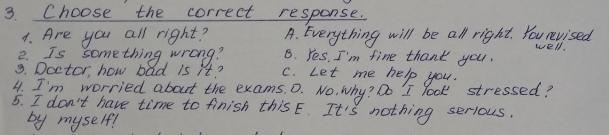 3. Choose the correct response.
1. Are you all right? A. Everything will be all right. You revised well.
2. Is something wrong? B. Yes, I'm fine thank you.
3. Doctor, how bad is it? C. Let me help you.
4. I'm worried about the exams. D. No, why? Do I look stressed?
5. I don't have time to finish this E. It's nothing serious.
by myself!